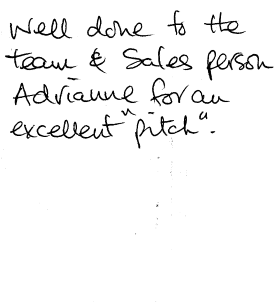 Well done to the
team & Sales person
Adrianne for an
excellent "pitch".